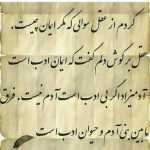 کردم از عقل سوالی که مگر ایمان چیست،
عقل بر گوش دلم گفت که ایمان ادب است
آدمیزاد اگر بی ادب است آدم نیست، فرق
مابین بنی آدم و حیوان ادب است